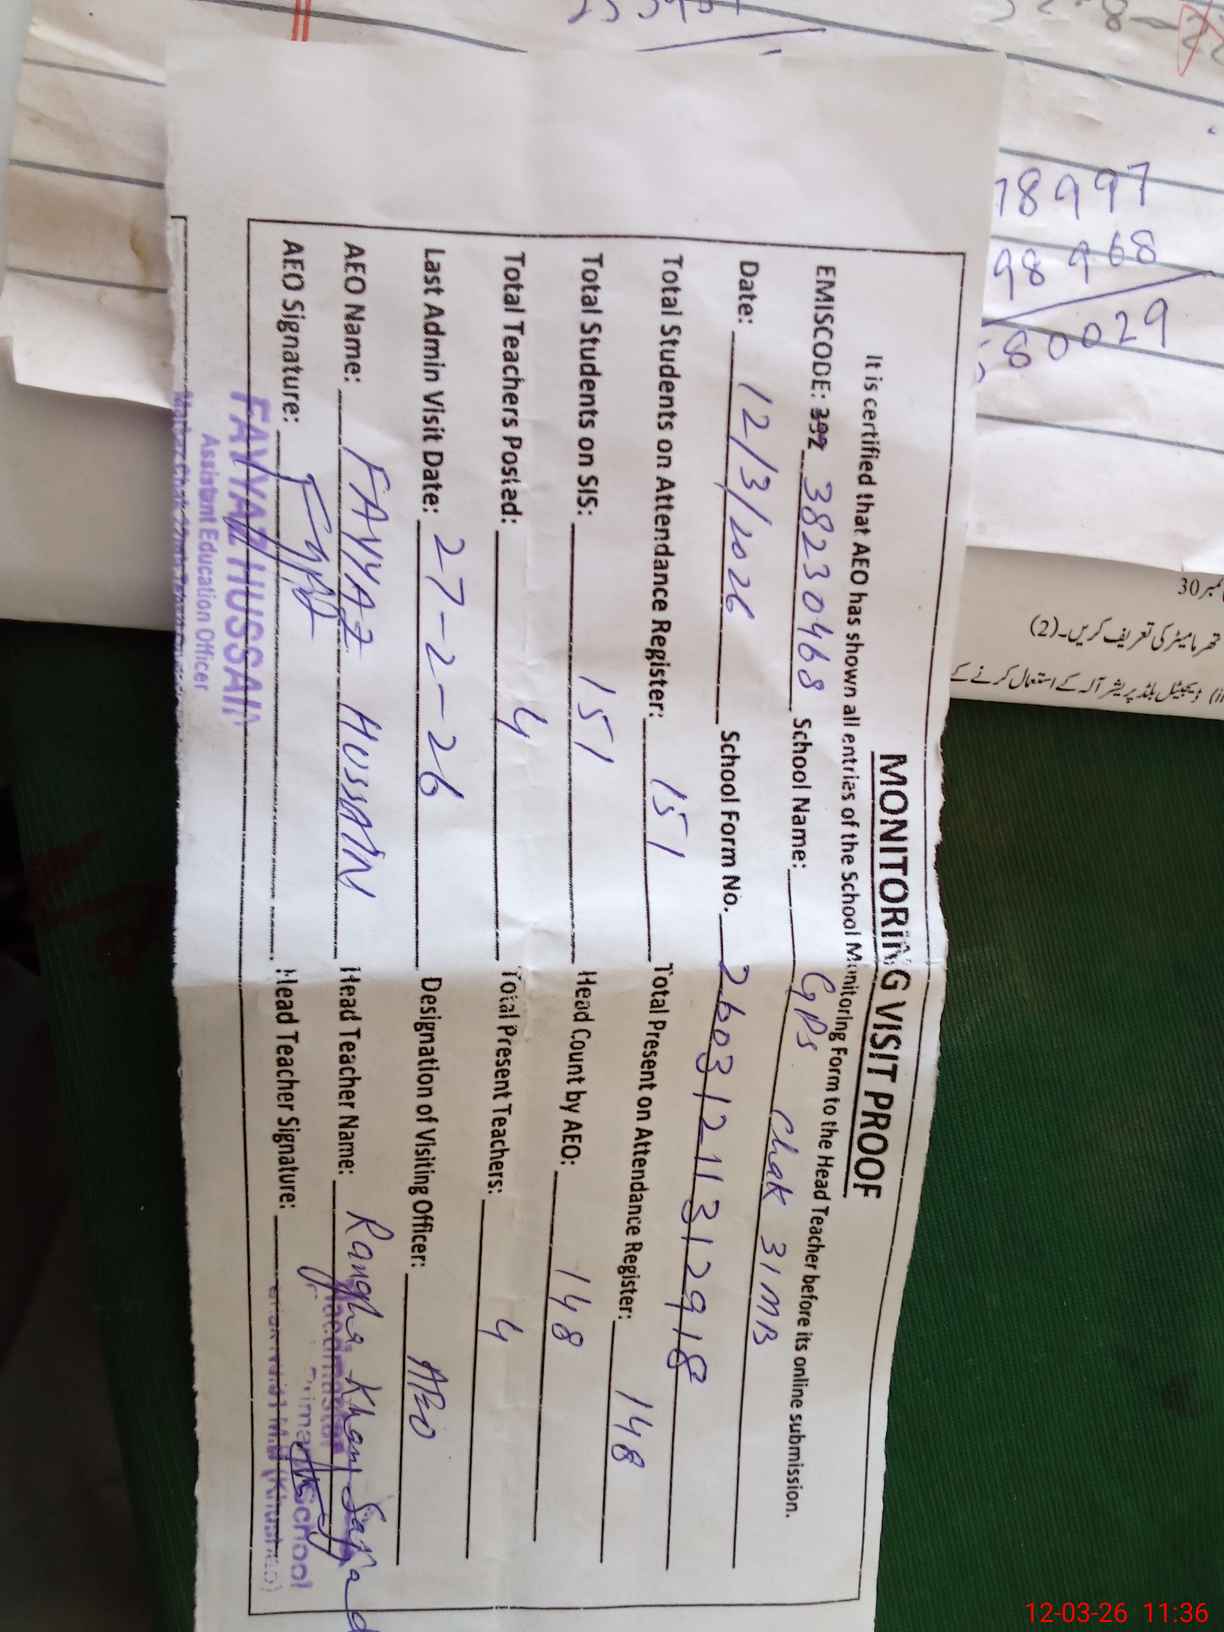 MONITORING VISIT PROOF
It is certified that AEO has shown all entries of the School Monitoring Form to the Head Teacher before its online submission.
EMISCODE: 392 38230468 School Name: GPS Chak 31MB
Date: 12/3/2026 School Form No. 26031211312918
Total Students on Attendance Register: 151 Total Present on Attendance Register: 148
Total Students on SIS: 151 Head Count by AEO: 148
Total Teachers Posted: 4 Total Present Teachers: 4
Last Admin Visit Date: 27-2-26 Designation of Visiting Officer: AEO
AEO Name: FAYYAZ HUSSAIN Head Teacher Name: Khan
AEO Signature: Head Teacher Signature:
FAYYAZ HUSSAIN
Assistant Education Officer
Headmaster
Primary School
18997
98968
80029
30
تھرمامیٹر کی تعریف کریں۔ (2)
ڈیجیٹل بلڈ پریشر آلہ کے استعمال کرنے کے
12-03-26 11:36